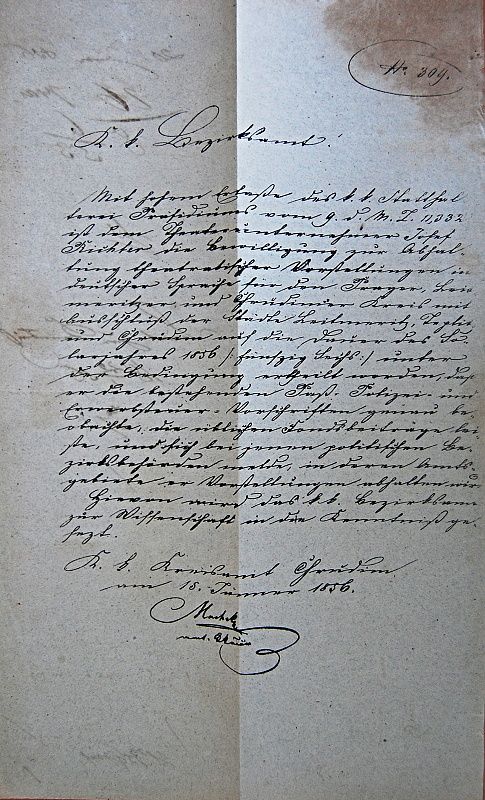 Nr. 309.
K. k. Bezirksamt!
Mit hohem Erlaße des k. k. Statthal
terei Präsidiums vom 9. d. M. Z. 11,332
ist dem Theaterunternehmer Josef
Richter die Bewilligung zur Abhal-
tung theatralischer Vorstellungen in
deutscher Sprache für den Prager, Leit
meritzer und Chrudimer Kreis mit
der Städte Leitmeritz, Teplitz
und Chrudim auf die Dauer des So-
larjahres 1856 /: fünfzig sechs :/ unter
der Bedingung ertheilt worden, daß
er die bestehenden Paß- Polizei- und
Erwerbsteuer-Vorschriften genau be-
obachte, die üblichen Fondsbeiträge lei-
ste, und sich bei jenen politischen Be-
zirksbehörden melde, in deren Amts-
gebiete er Vorstellungen abhalten wird.
Hievon wird das k. k. Bezirksamt
zur Wissenschaft in die Kenntniß ge-
setzt.
K. k. Kreisamt Chrudim
am 15. Jänner 1856.